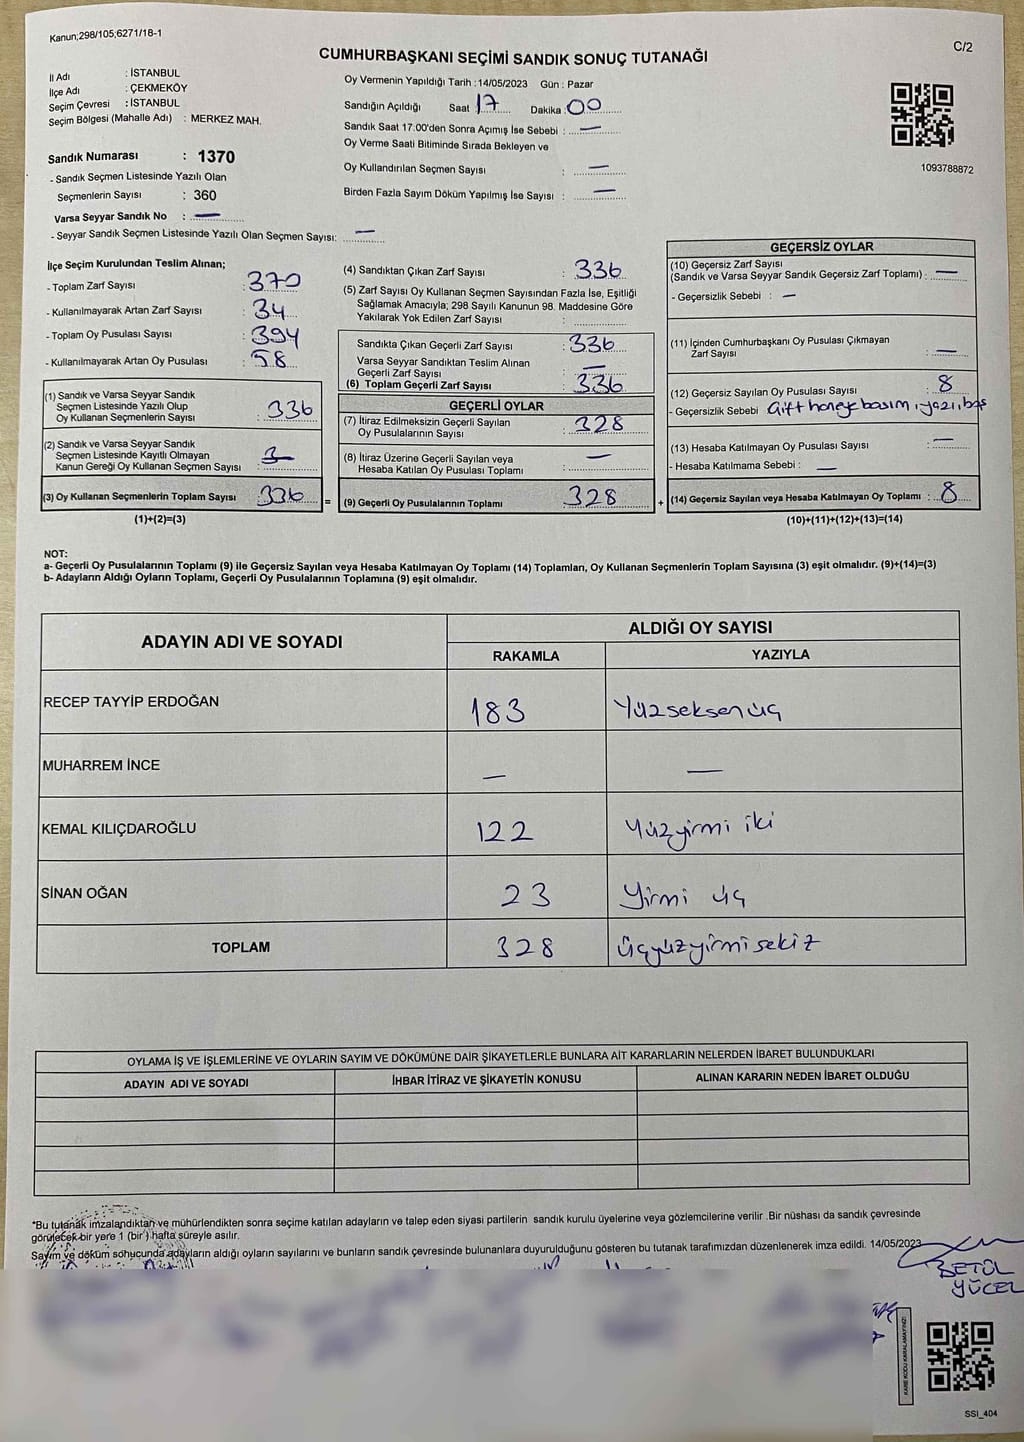 Kanun;298/105,6271/18-1
C/2
CUMHURBAŞKANI SEÇİMİ SANDIK SONUÇ TUTANAĞI
İl Adı : İSTANBUL
İlçe Adı : ÇEKMEKÖY
Seçim Çevresi : İSTANBUL
Seçim Bölgesi (Mahalle Adı) : MERKEZ MAH.
Sandık Numarası : 1370
- Sandık Seçmen Listesinde Yazılı Olan
Seçmenlerin Sayısı : 360
Varsa Seyyar Sandık No : —
- Seyyar Sandık Seçmen Listesinde Yazılı Olan Seçmen Sayısı: —
Oy Vermenin Yapıldığı Tarih : 14/05/2023 Gün : Pazar
Sandığın Açıldığı Saat 17 Dakika : 00
Sandık Saat 17:00'den Sonra Açımış İse Sebebi : —
Oy Verme Saati Bitiminde Sırada Bekleyen ve
Oy Kullandırılan Seçmen Sayısı : —
Birden Fazla Sayım Döküm Yapılmış İse Sayısı : —
1093788872
İlçe Seçim Kurulundan Teslim Alınan;
- Toplam Zarf Sayısı : 370
- Kullanılmayarak Artan Zarf Sayısı : 34
- Toplam Oy Pusulası Sayısı : 394
- Kullanılmayarak Artan Oy Pusulası : 58
(1) Sandık ve Varsa Seyyar Sandık
Seçmen Listesinde Yazılı Olup
Oy Kullanan Seçmenlerin Sayısı : 336
(2) Sandık ve Varsa Seyyar Sandık
Seçmen Listesinde Kayıtlı Olmayan
Kanun Gereği Oy Kullanan Seçmen Sayısı : —
(3) Oy Kullanan Seçmenlerin Toplam Sayısı : 336 =
(1)+(2)=(3)
(4) Sandıktan Çıkan Zarf Sayısı : 336
(5) Zarf Sayısı Oy Kullanan Seçmen Sayısından Fazla İse, Eşitliği
Sağlamak Amacıyla; 298 Sayılı Kanunun 98. Maddesine Göre
Yakılarak Yok Edilen Zarf Sayısı :
Sandıkta Çıkan Geçerli Zarf Sayısı : 336
Varsa Seyyar Sandıktan Teslim Alınan
Geçerli Zarf Sayısı : —
(6) Toplam Geçerli Zarf Sayısı : 336
GEÇERLİ OYLAR
(7) İtiraz Edilmeksizin Geçerli Sayılan
Oy Pusulalarının Sayısı : 328
(8) İtiraz Üzerine Geçerli Sayılan veya
Hesaba Katılan Oy Pusulası Toplamı : —
(9) Geçerli Oy Pusulalarının Toplamı 328 +
GEÇERSİZ OYLAR
(10) Geçersiz Zarf Sayısı
(Sandık ve Varsa Seyyar Sandık Geçersiz Zarf Toplamı) : —
- Geçersizlik Sebebi : —
(11) İçinden Cumhurbaşkanı Oy Pusulası Çıkmayan
Zarf Sayısı : —
(12) Geçersiz Sayılan Oy Pusulası Sayısı : 8
- Geçersizlik Sebebi Çift haneye basım, yazı, boş
(13) Hesaba Katılmayan Oy Pusulası Sayısı : —
- Hesaba Katılmama Sebebi : —
(14) Geçersiz Sayılan veya Hesaba Katılmayan Oy Toplamı : 8
(10)+(11)+(12)+(13)=(14)
NOT:
a- Geçerli Oy Pusulalarının Toplamı (9) ile Geçersiz Sayılan veya Hesaba Katılmayan Oy Toplamı (14) Toplamları, Oy Kullanan Seçmenlerin Toplam Sayısına (3) eşit olmalıdır. (9)+(14)=(3)
b- Adayların Aldığı Oyların Toplamı, Geçerli Oy Pusulalarının Toplamına (9) eşit olmalıdır.
ADAYIN ADI VE SOYADI
ALDIĞI OY SAYISI
RAKAMLA YAZIYLA
RECEP TAYYİP ERDOĞAN 183 Yüzseksenüç
MUHARREM İNCE — —
KEMAL KILIÇDAROĞLU 122 Yüzyirmi iki
SİNAN OĞAN 23 Yirmi üç
TOPLAM 328 Üçyüzyirmisekiz
OYLAMA İŞ VE İŞLEMLERİNE VE OYLARIN SAYIM VE DÖKÜMÜNE DAİR ŞİKAYETLERLE BUNLARA AİT KARARLARIN NELERDEN İBARET BULUNDUKLARI
ADAYIN ADI VE SOYADI İHBAR İTİRAZ VE ŞİKAYETİN KONUSU ALINAN KARARIN NEDEN İBARET OLDUĞU
*Bu tutanak imzalandıktan ve mühürlendikten sonra seçime katılan adayların ve talep eden siyasi partilerin sandık kurulu üyelerine veya gözlemcilerine verilir .Bir nüshası da sandık çevresinde
görülecek bir yere 1 (bir ) hafta süreyle asılır.
Sayım ve döküm sonucunda adayların aldığı oyların sayılarını ve bunların sandık çevresinde bulunanlara duyurulduğunu gösteren bu tutanak tarafımızdan düzenlenerek imza edildi. 14/05/2023
BETÜL
YÜCEL
KARE KODU KARALAMAYINIZ!
SSI_404